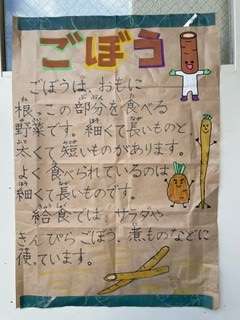 ごぼう
ごぼうは、おもに
根、この部分を食べる
野菜です。細くて長いものと、
太くて短いものがあります。
よく食べられているのは
細くて長いものです。
給食では、サラダや
きんぴらごぼう、煮ものなどに
使っています。